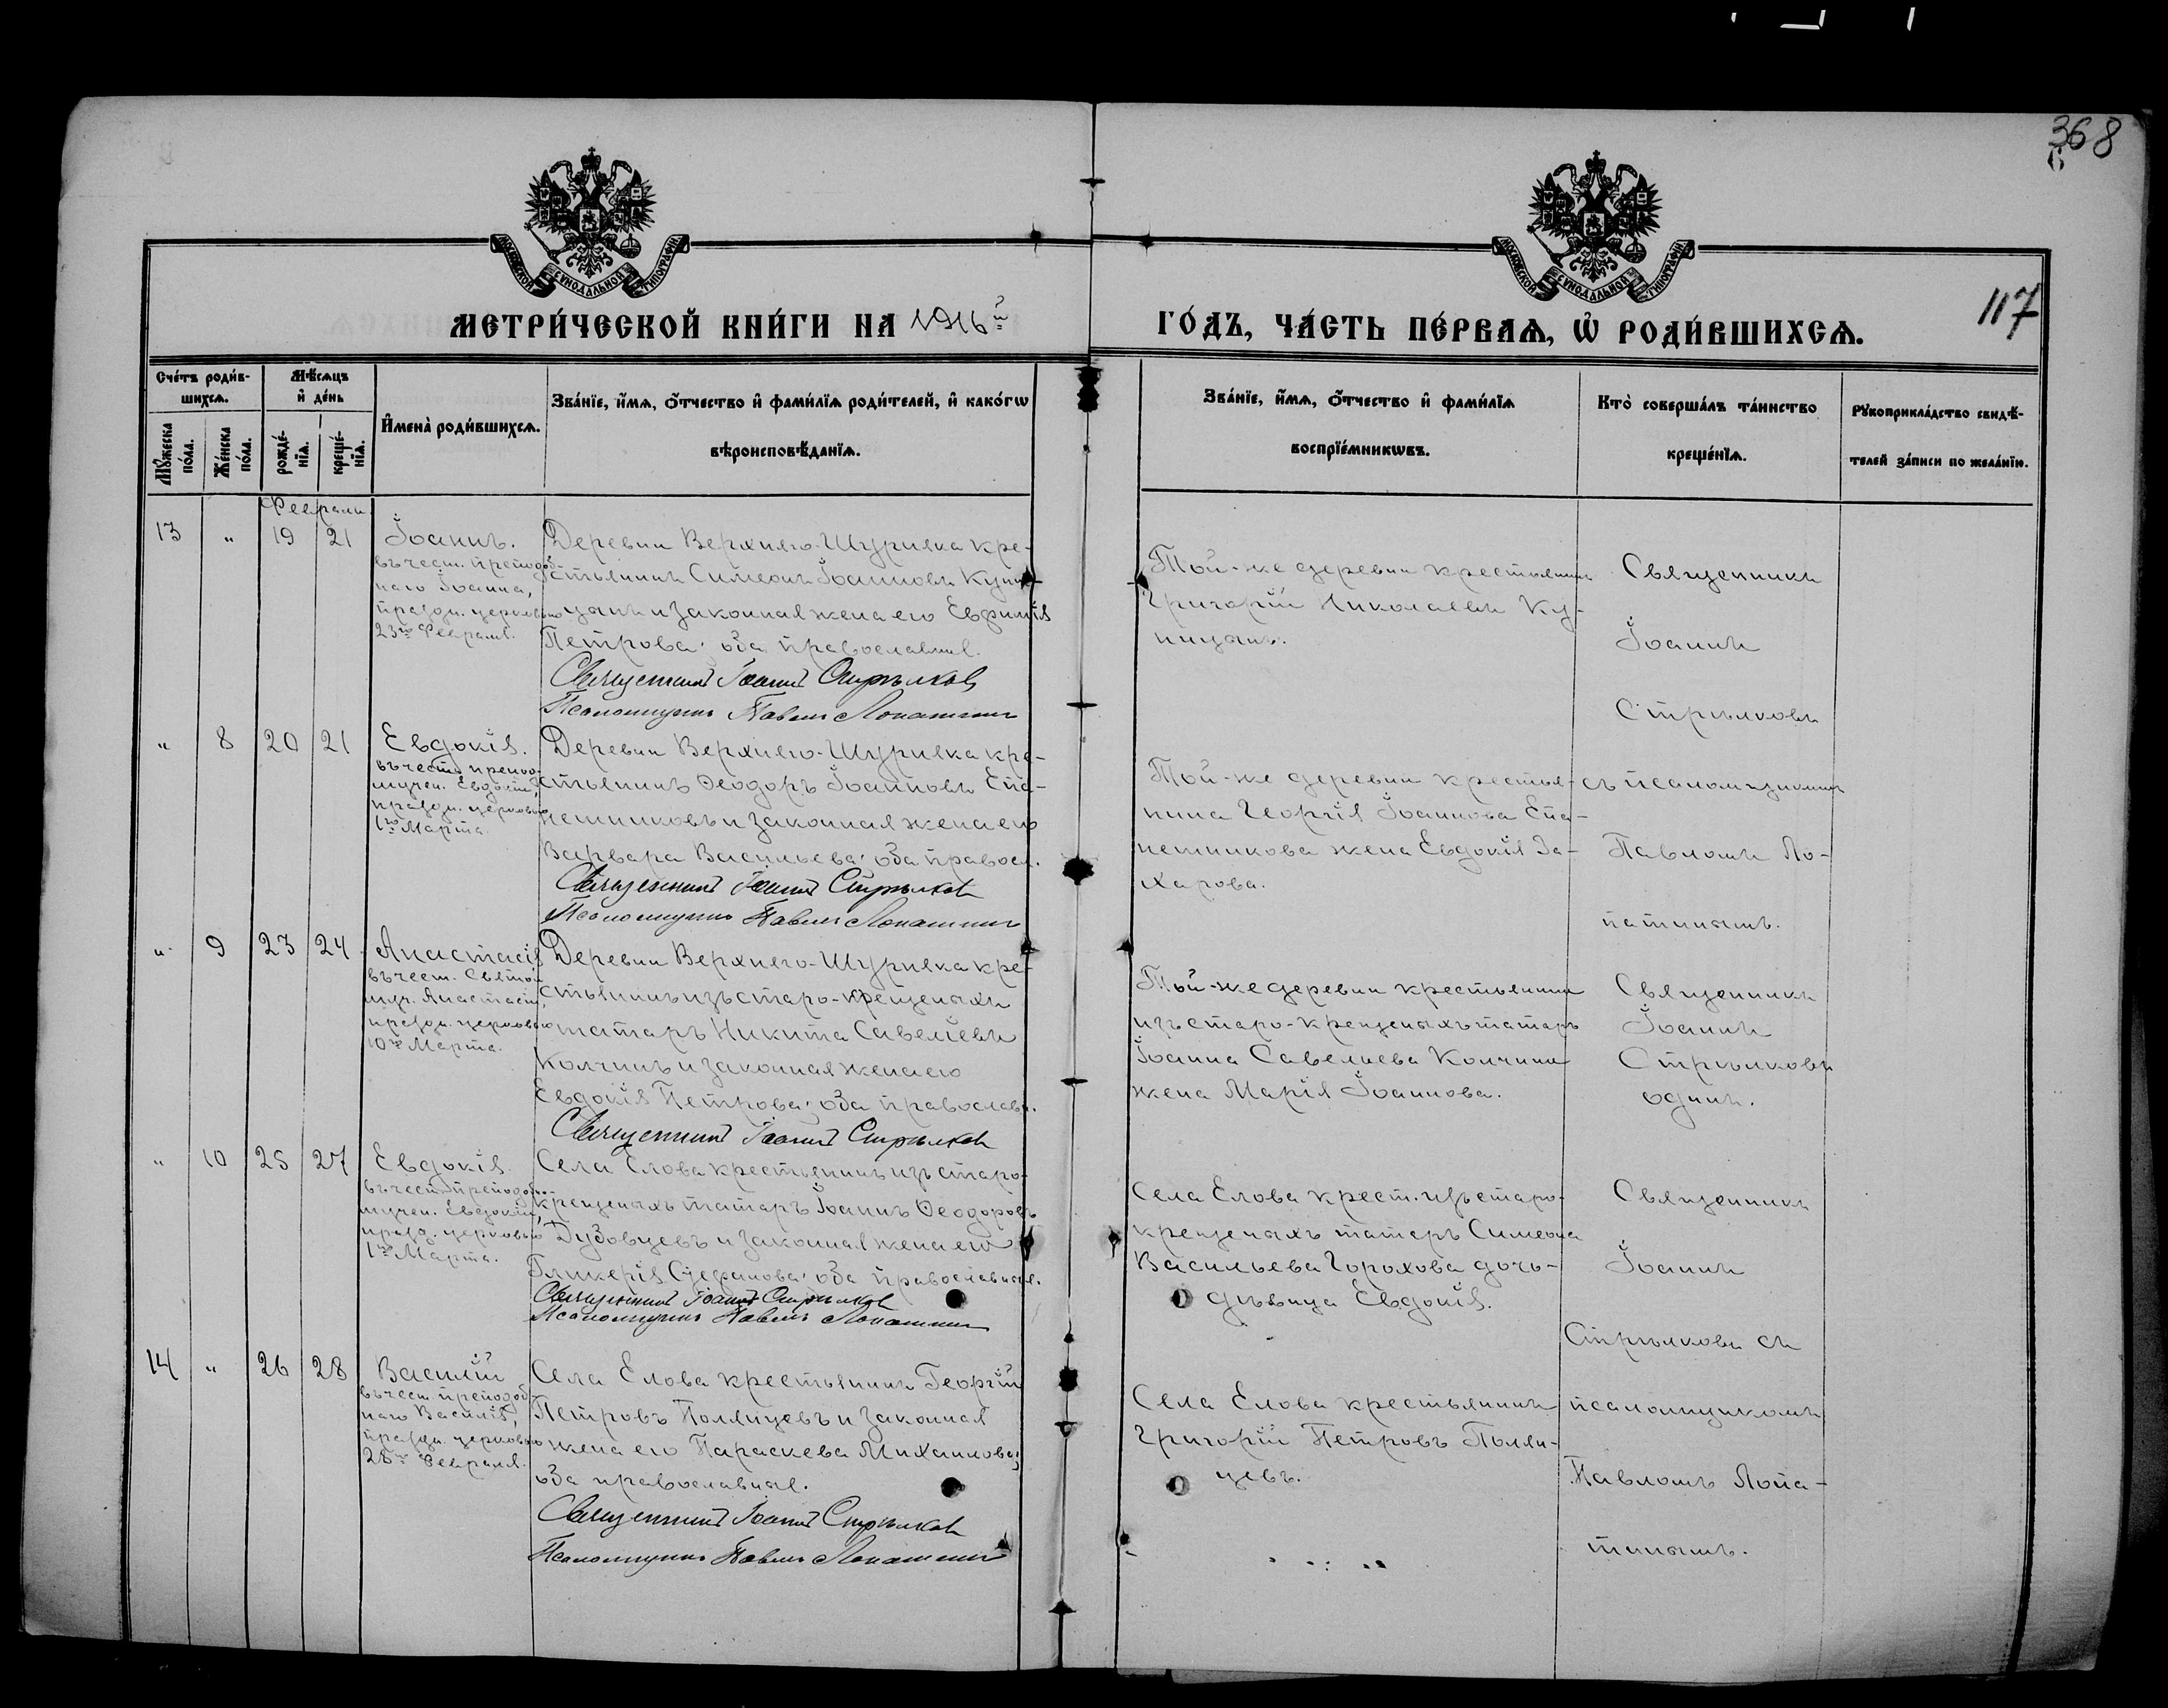 368
117
МОСКОВСКОЙ СѴНОДАЛЬНОЙ ТИПОГРАФІИ
МОСКОВСКОЙ СѴНОДАЛЬНОЙ ТИПОГРАФІИ
МЕТРИ́ЧЕСКОЙ КНИ́ГИ НА 1916й
ГО́ДЪ, ЧА́СТЬ ПЕ́РВАѦ, Ѽ РОДИ́ВШИХСѦ.
Сче́тъ роди́в-
шихсѧ.
Мѣ́сѧцъ
и҆ де́нь
Мꙋ́жеска по́ла.
Же́нска по́ла.
рожде́-
нїѧ.
креще́-
нїѧ.
И҆мена̀ роди́вшихсѧ.
Зва́нїе, и҆́мѧ, ѻ҆́тчество и҆ фами́лїѧ роди́телей, и҆ како́гѡ
вѣроисповѣ́данїѧ.
Зва́нїе, и҆́мѧ, ѻ҆́тчество и҆ фами́лїѧ
воспрїе́мникѡвъ.
Кто̀ соверша́лъ та́инство
креще́нїѧ.
Рꙋкоприкла́дство свидѣ́-
телей за́писи по жела́нїю.
Февраль
13 " 19 21
Іоаннъ.
въ чест. преподоб-
наго Іоанна,
праздн. церковью
23го Февраля.
Деревни Верхняго-Шурняка кре-
стьянинъ Симеонъ Іоанновъ Купи-
цынъ и законная жена его Евфимія
Петрова; оба православные.
Священникъ Іоаннъ Стрѣлковъ
Псаломщикъ Павелъ Лопатинъ
Той-же деревни крестьянинъ
Григорій Николаевъ Ку-
пицынъ.
Священникъ
Іоаннъ
Стрѣлковъ
" 8 20 21
Евдокія.
въ честь препод-
мучен. Евдокіи,
праздн. церковью
1го Марта.
Деревни Верхняго-Шурняка кре-
стьянинъ Ѳеодоръ Іоанновъ Епа-
нешниковъ и законная жена его
Варвара Васильева; оба правосл.
Священникъ Іоаннъ Стрѣлковъ
Псаломщикъ Павелъ Лопатинъ
Той-же деревни крестья-
нина Георгія Іоаннова Епа-
нешникова жена Евдокія За-
харова.
съ псаломщикомъ
Павломъ Ло-
патинымъ.
" 9 23 24
Анастасія
въ чест. Святой
муч. Анастасіи,
праздн. церковью
10го Марта.
Деревни Верхняго-Шурняка кре-
стьянинъ изъ старо-крещеныхъ
татаръ Никита Савеліевъ
Колчинъ и законная жена его
Евдокія Петрова; оба православн.
Священникъ Іоаннъ Стрѣлковъ
Той-же деревни крестьянина
изъ старо-крещеныхъ татаръ
Іоанна Савельева Колчина
жена Марія Іоаннова.
Священникъ
Іоаннъ
Стрѣлковъ
одинъ.
" 10 25 27
Евдокія.
въ честь преподобно-
мучен. Евдокіи,
празд. церковью
1го Марта.
Села Елова крестьянинъ изъ старо-
крещеныхъ татаръ Іоаннъ Ѳеодоровъ
Дубовцевъ и законная жена его
Гликерія Стефанова; оба православные.
Священникъ Іоаннъ Стрѣлковъ
Псаломщикъ Павелъ Лопатинъ
Села Елова крест. изъ старо-
крещеныхъ татаръ Симеона
Васильева Горохова дочь-
дѣвица Евдокія.
Священникъ
Іоаннъ
Стрѣлковъ съ
14 " 26 28
Василій
въ чест. преподоб-
наго Василія,
праздн. церковью
28го Февраля.
Села Елова крестьянинъ Георгій
Петровъ Поллицевъ и законная
жена его Параскева Михаилова;
оба православные.
Священникъ Іоаннъ Стрѣлковъ
Псаломщикъ Павелъ Лопатинъ
Села Елова крестьянинъ
Григорій Петровъ Полли-
цевъ.
псаломщикомъ
Павломъ Лопа-
тинымъ.